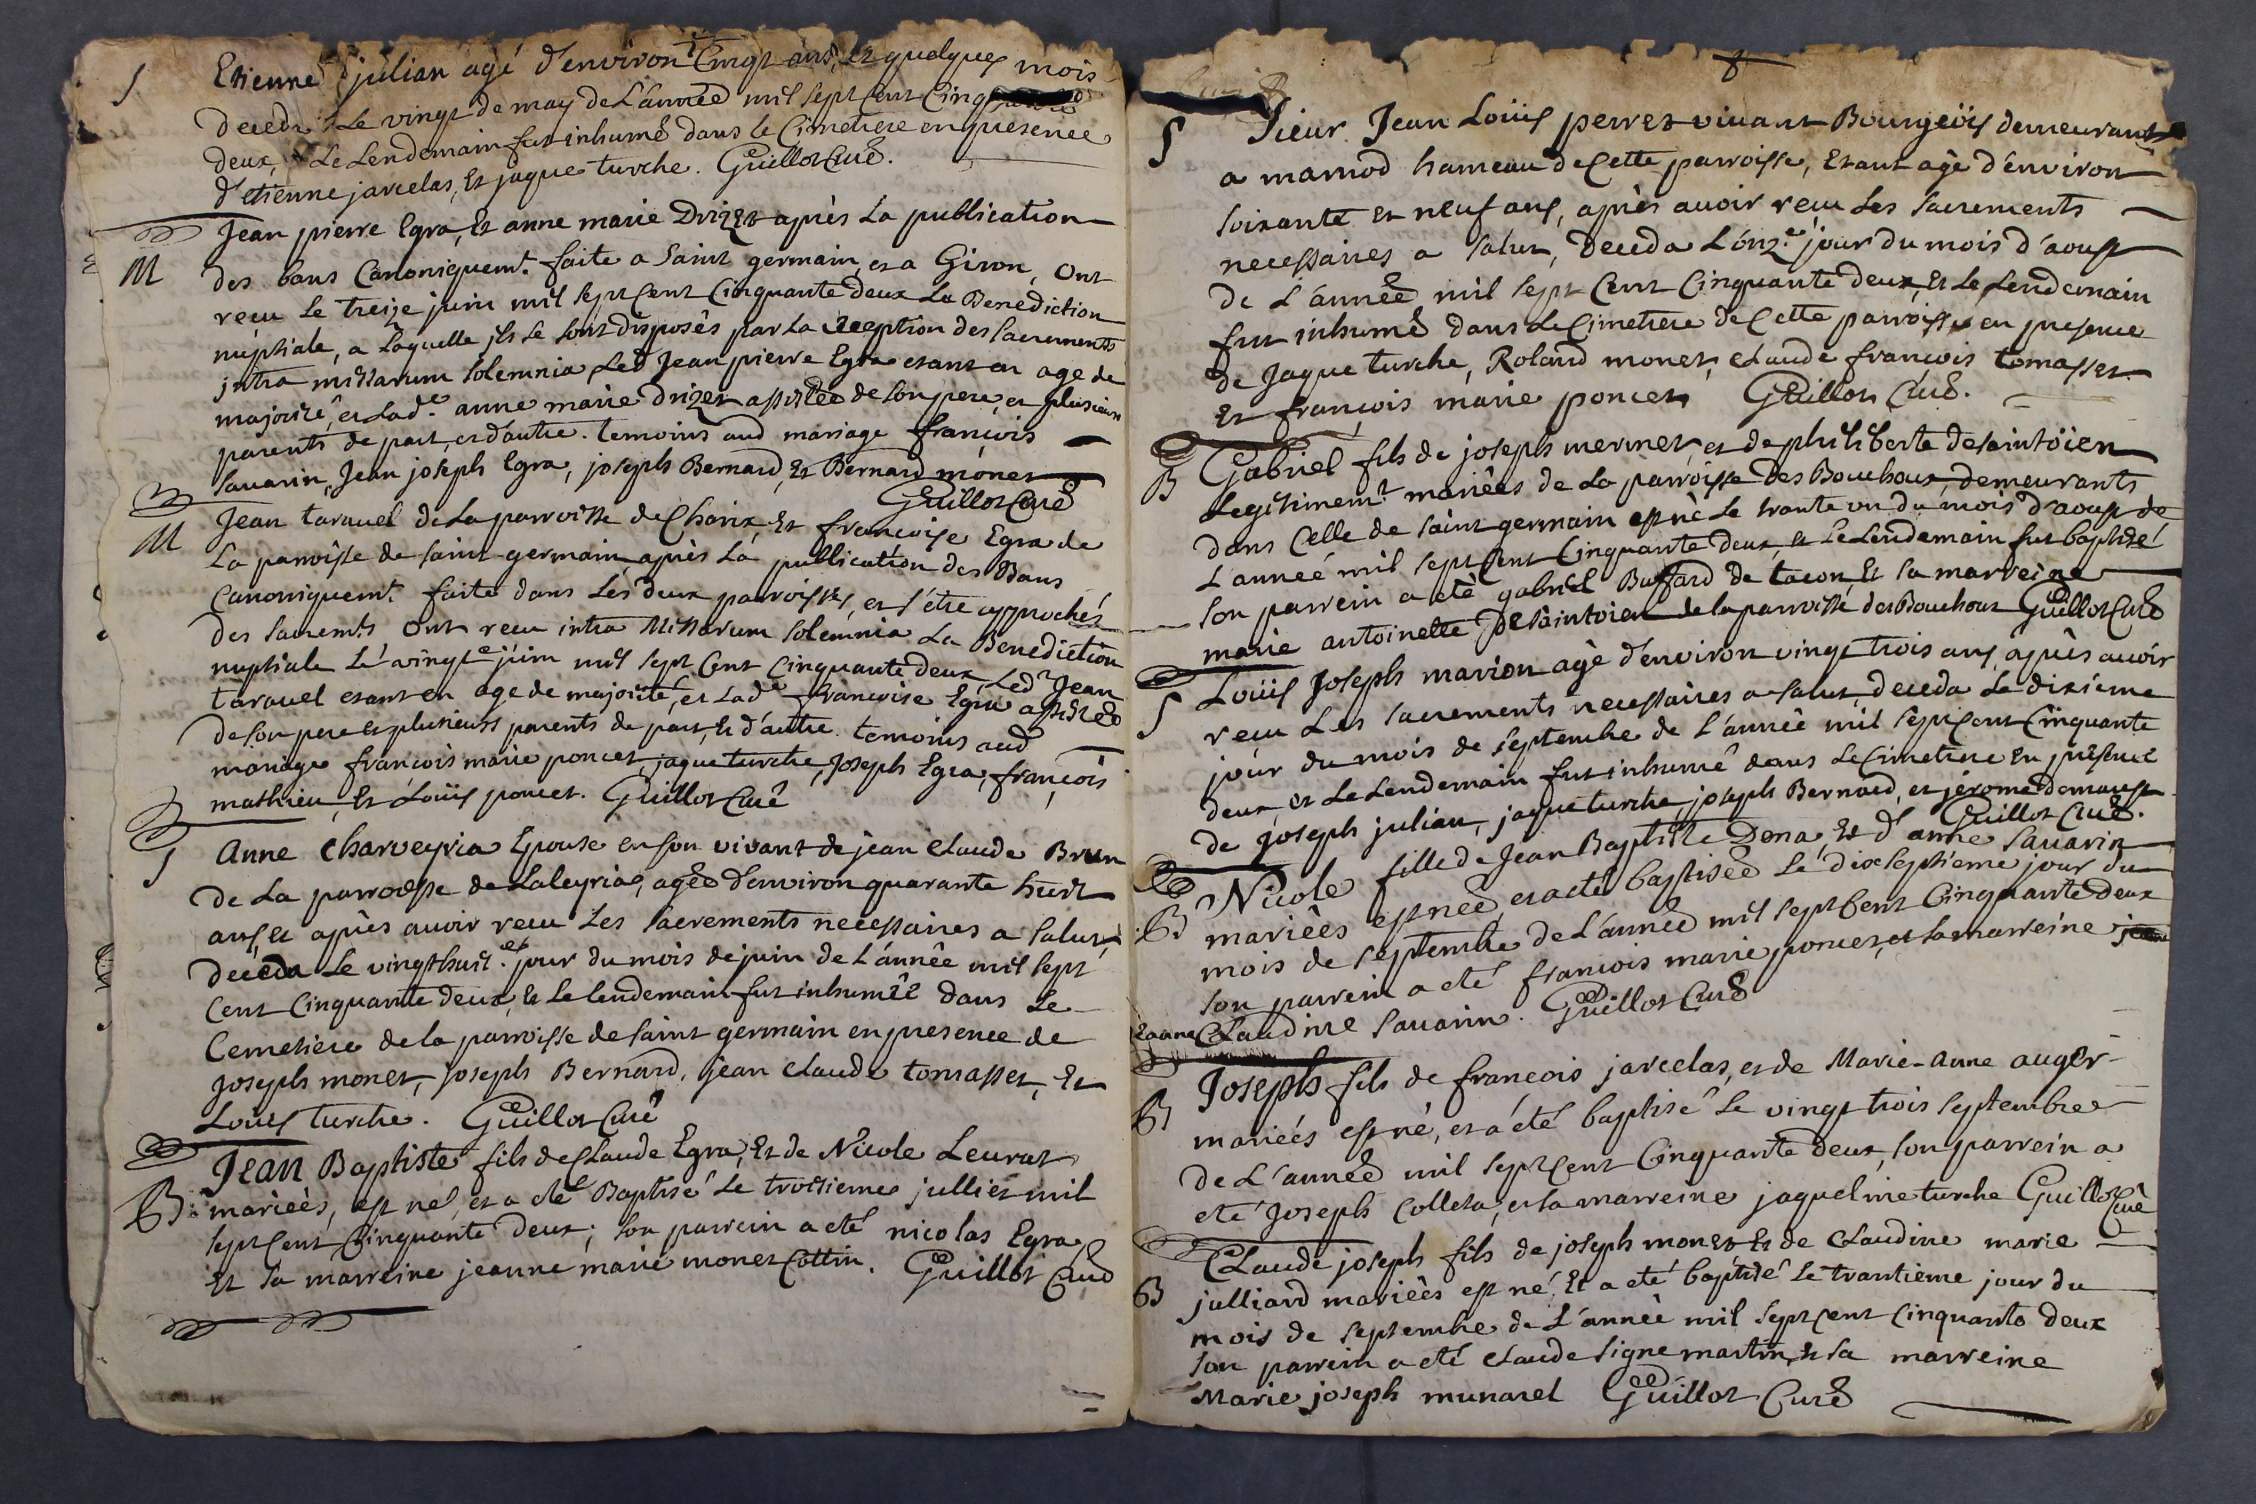 S Etienne julian agé d'environ vingt ans, et quelques mois
deceda le vingt de may de L'année mil sept Cent Cinquante
deux, et Le Lendemain fut inhumé dans le Cimetiere en presence
d'etienne jarcelas, Et jaque turche. Guillot Curé.
Jean pierre Egra, Et anne marie Drizet après La publication
M des bans Canoniquemt. faite a Saint germain, et a Giron, Ont
recu le treize juin mil sept Cent Cinquante deux La Benediction
nuptiale, a laquelle jls se sont disposés par La reception des Sacrements
jntra missarum Solemnia, Led Jean pierre Egra etant en age de
majorité, et Lade. anne marie drizet assistée de son pere, et plusieurs
parents de part, et d'autre. temoins aud mariage françois
Savarin, Jean joseph Egra, joseph Bernard, Et Bernard monet
Guillot Curé
M Jean taravel de La parroisse de Charix, Et francoise Egra de
La parroisse de saint germain, après La publication des Bans
Canoniquemt. faite dans Les deux parroisses, et s'être approchés
des sacremts. Ont recu intra Missarum Solemnia La Benediction
nuptiale Le vingte juin mil sept Cent Cinquante deux, Ledt Jean
taravel etant en age de majorité, et Lade francoise Egra assistée
de son pere et plusieurs parents de part, Et d'autre. temoins aud
mariage francois marie poncet, jaque turche, Joseph Egra, françois
mathieu, Et Loüis poncet. Guillot Curé
S Anne Charveyria Epouse en son vivant de jean claude Brun
de La parroisse de Laleyriae, agée d'environ quarante huit
ans, et après avoir recu Les Sacrements necessaires a salut,
deceda Le vingthuite. jour du mois de juin de L'année mil sept
Cent Cinquante deux, Et Le lendemain fut inhumée dans Le
Cemetiere de la parroisse de saint germain en presence de
Joseph monet, joseph Bernard, jean claude tomasset, Et
Louis turche. Guillot Curé
Jean Baptiste fils de Claude Egra, Et de Nicole Leurat
B: mariées, est né, et a été Baptisé Le troisieme julliet mil
sept Cent Cinquante deux; son parrein a eté nicolas Egra
Et sa marreine jeanne marie monet Cottin. Guillot Curé
S Sieur Jean Loüis perret vivant Bourgeöis demeurant
a marnod hameau de Cette parroisse, Etant agé d'environ
soixante et neuf ans, après avoir recu Les Sacrements
necessaires a salut, deceda L'onze. jour du mois d'aoust
de L'année mil sept Cent Cinquante deux, Et Le Lendemain
fut inhumé dans Le Cimetiere de Cette parroisse en presence
de Jaque turche, Roland monet, claude françois tomasset
et françois marie poncet Guillot Curé.
B Gabriel fils de joseph mermet, et de philiberte desaintöien
Legitimemt mariées de La parroisse des Bouchoux, demeurants
dans Celle de saint germain est né Le trante un du mois d'aoust de
L'année mil sept Cent Cinquante deux, et Le Lendemain fut baptisé
son parrein a eté gabriel Buffard de tacon, Et sa marreine
marie antoinette Desaintoien de la parroisse des Bouchoux Guillot Curé
S Loüis Joseph marion agé d'environ vingt trois ans, après avoir
recu Les sacrements necessaires a salut, deceda Le dixieme
jour du mois de septembre de L'année mil sept Cent Cinquante
deux, et Le Lendemain fut inhumé dans Le Cimetiere En presence
de joseph julian, jaque turche, joseph Bernard, et jérome demaust
Guillot Curé.
B Nicole fille de Jean Baptiste Dona, Et d'anne Savarin
mariées est née, et a eté baptisée Le dixseptieme jour du
mois de septembre de L'année mil sept Cent Cinquante deux
son parrein a eté francois marie poncet, et sa marreine
Claudine Savarin. Guillot Curé
Joseph fils de françois jarcelas, et de Marie-Anne auger
B mariées est né, et a eté baptisé Le vingt trois septembre
de L'année mil sept Cent Cinquante deux, son parrein a
eté Joseph Colleta, et sa marreine jaqueline turche Guillot Curé
Claude joseph fils de joseph monet, Et de Claudine marie
B julliard mariées est né, Et a eté baptisé Le trantieme jour du
mois de septembre de L'année mil sept Cent Cinquante deux
son parrein a eté claude signe martin, Et sa marreine
Marie joseph munarel Guillot Curé